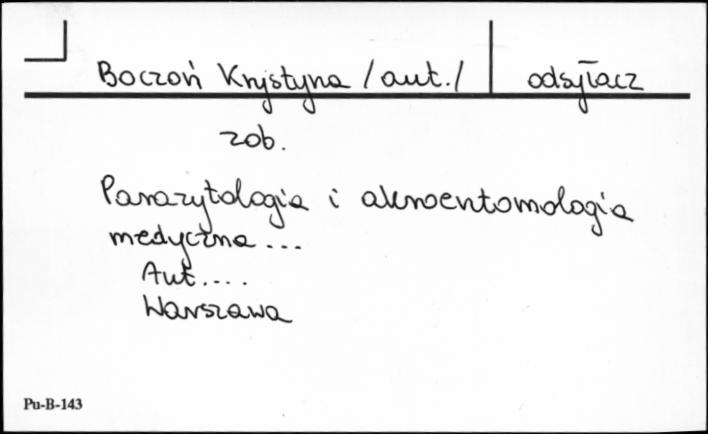 Boczoń Krystyna /aut./ odsyłacz
zob.
Parazytologia i akroentomologia
medyczna ...
Aut....
Warszawa
Pu-B-143